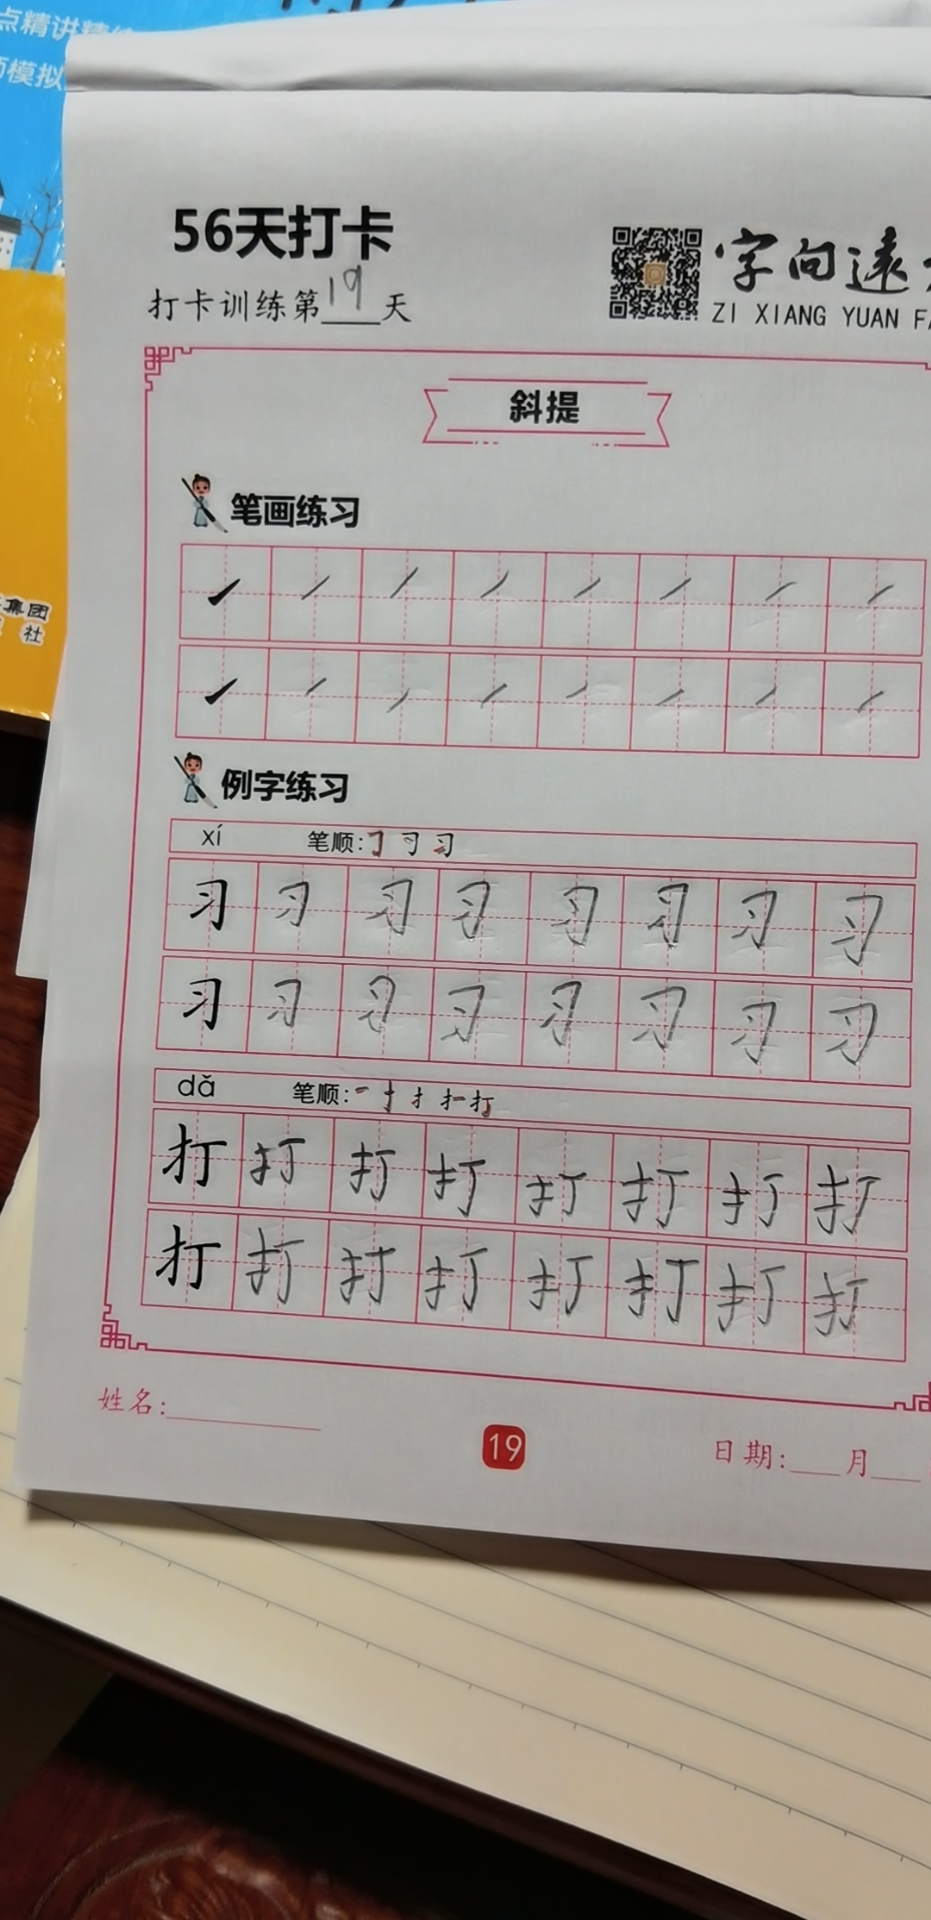 点精讲精练
师模拟
集团
社
56天打卡
打卡训练第19天
字向远
ZI XIANG YUAN FA
斜提
笔画练习
例字练习
xí 笔顺:
习 习 习 习 习 习 习 习
习 习 习 习 习 习 习 习
dǎ 笔顺:一 十 扌 打
打 打 打 打 打 打 打 打
打 打 打 打 打 打 打 打
姓名:
19
日期: 月